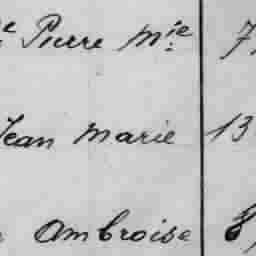 Pierre Mie 7
Jean Marie 13
Ambroise 8